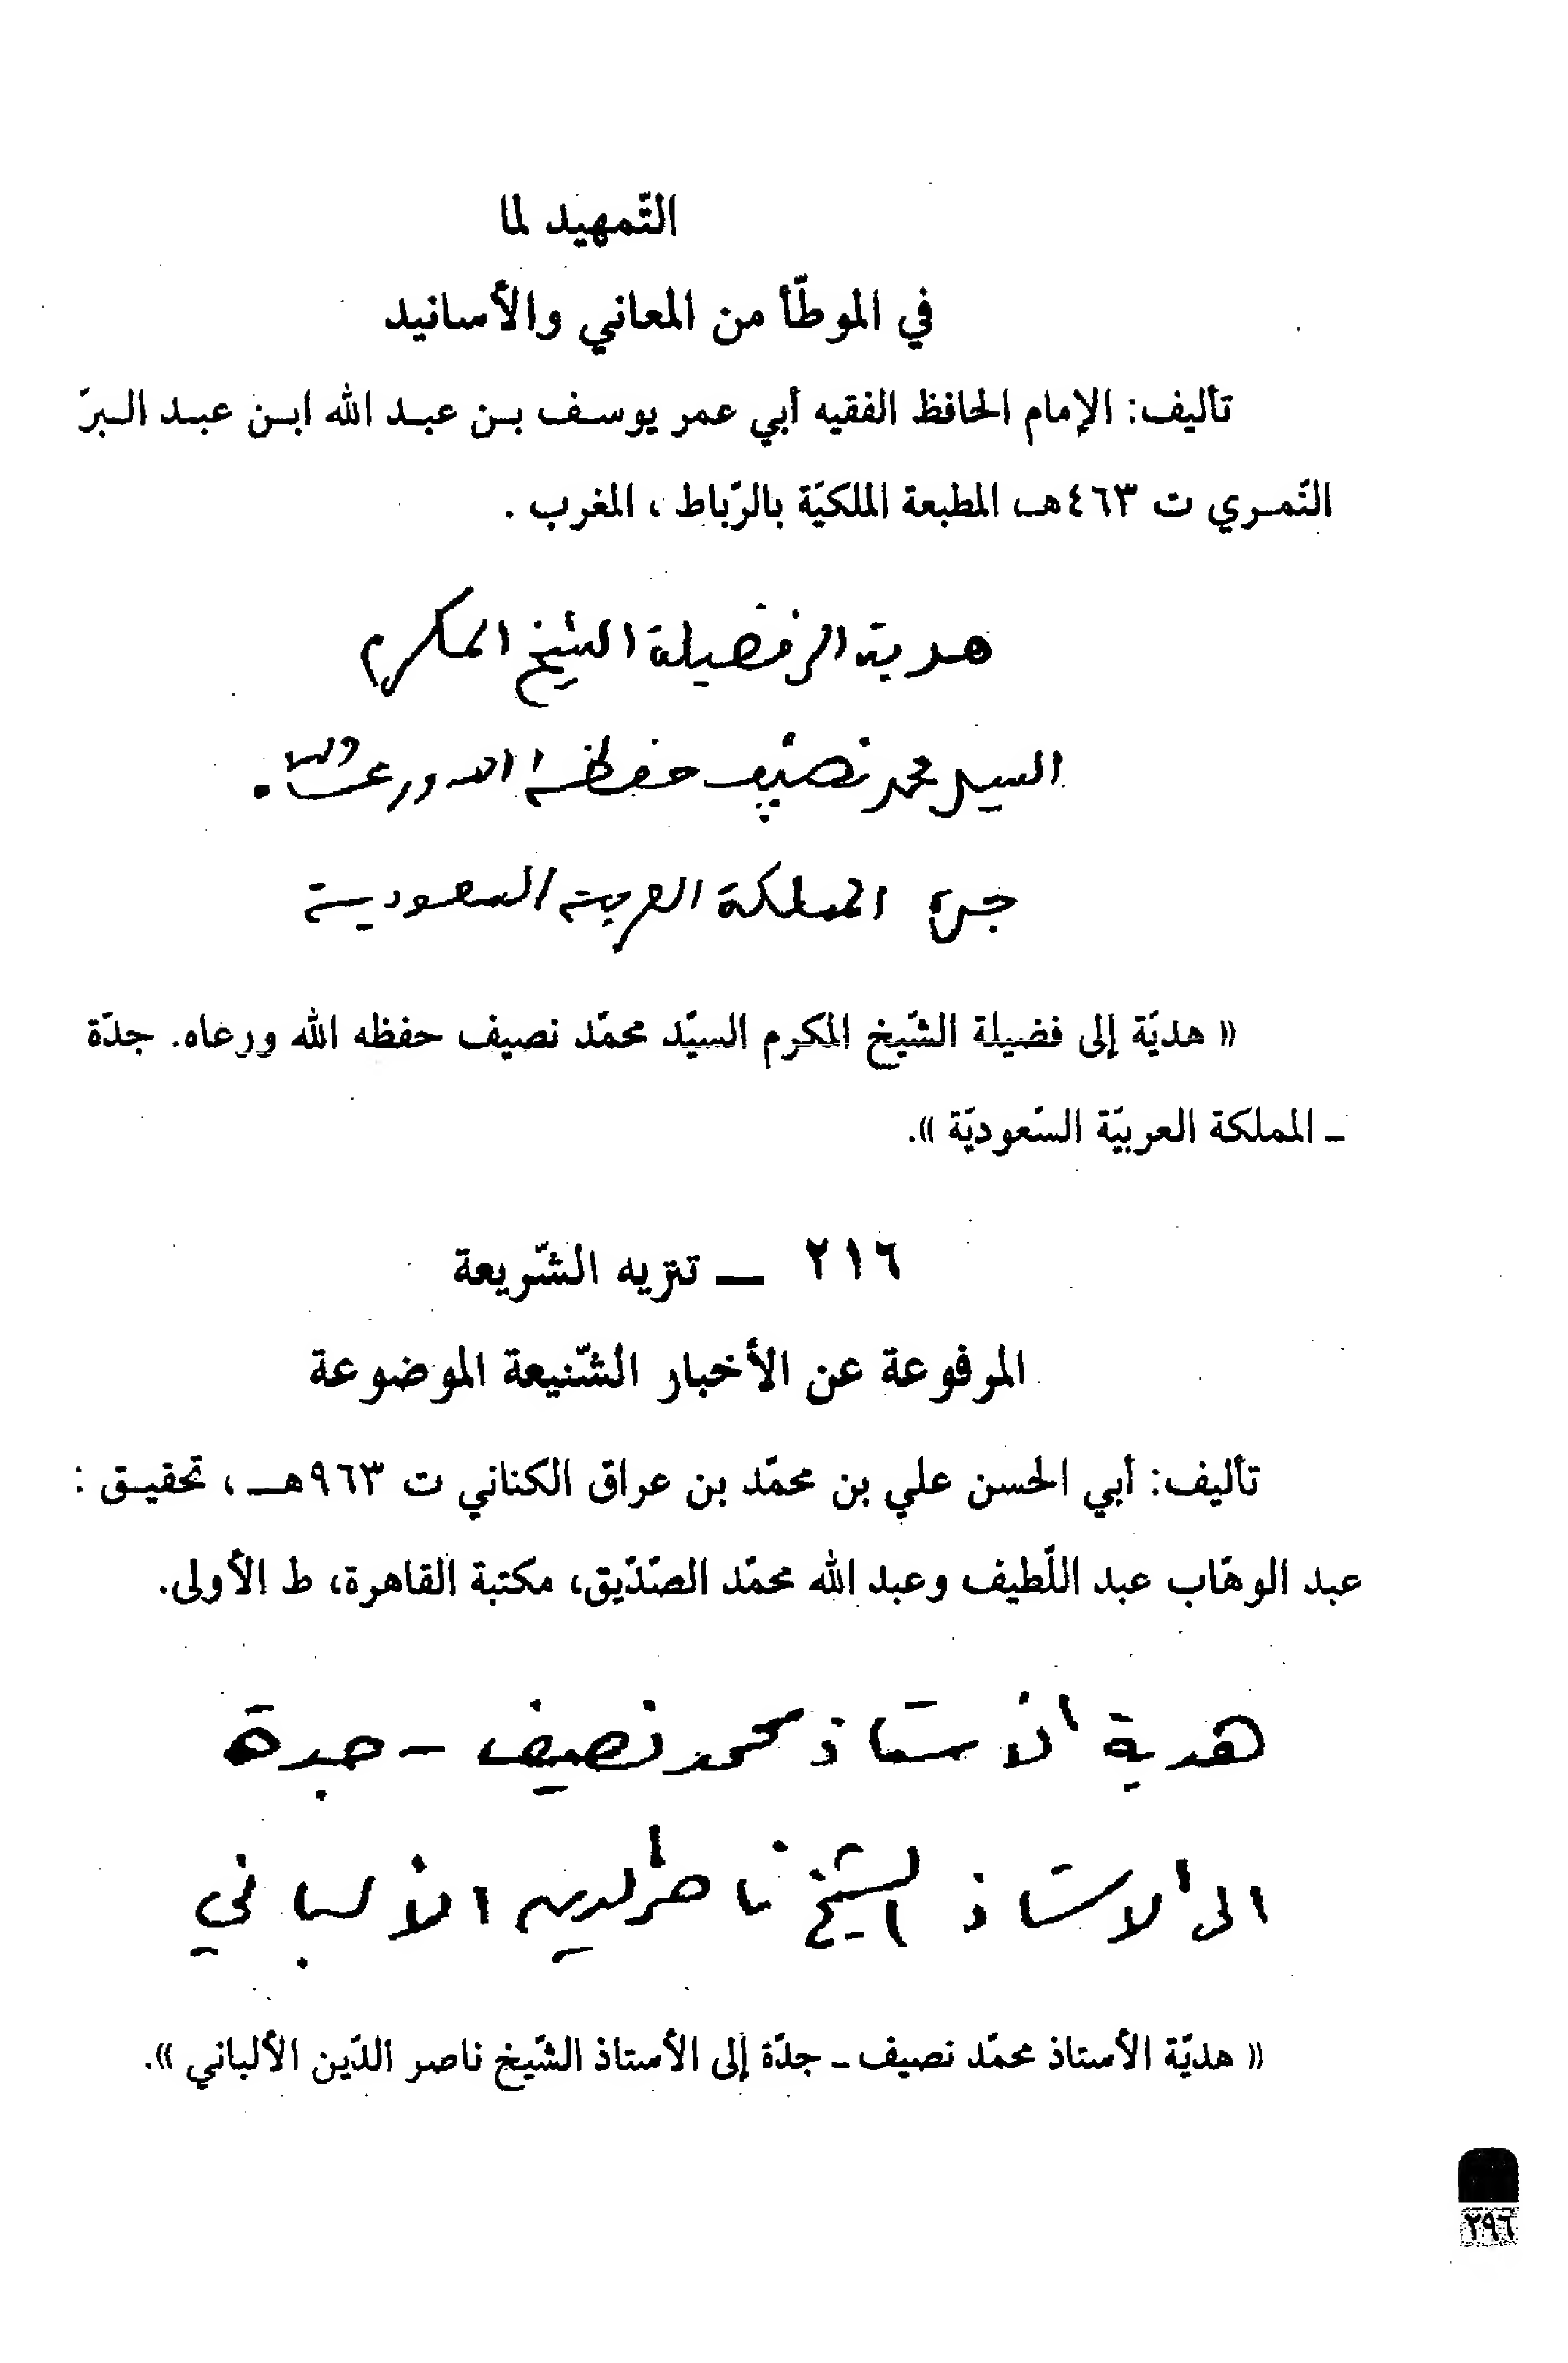 التّمهيد لما
في الموطّأ من المعاني والأسانيد
تأليف: الإمام الحافظ الفقيه أبي عمر يوسف بن عبد الله ابن عبد البرّ
النّمري ت ٤٦٣هـ المطبعة الملكيّة بالرّباط ، المغرب .
هدية الى فضيلة الشيخ المكرم
السيد محمد نصيف حفظه الله ورعاه .
جدة المملكة العربية السعودية
« هديّة إلى فضيلة الشّيخ المكرم السيّد محمّد نصيف حفظه الله ورعاه. جدّة
ـ المملكة العربيّة السّعوديّة ».
٢١٦ ـــ تنزيه الشّريعة
المرفوعة عن الأخبار الشّنيعة الموضوعة
تأليف: أبي الحسن علي بن محمّد بن عراق الكناني ت ٩٦٣هـ ، تحقيق :
عبد الوهّاب عبد اللّطيف وعبد الله محمّد الصّدّيق، مكتبة القاهرة، ط الأولى.
هدية الأستاذ محمد نصيف - جدة
الى الاستاذ الشيخ ناصر الدين الألباني
« هديّة الأستاذ محمّد نصيف ـ جدّة إلى الأستاذ الشّيخ ناصر الدّين الألباني ».
٢٩٦